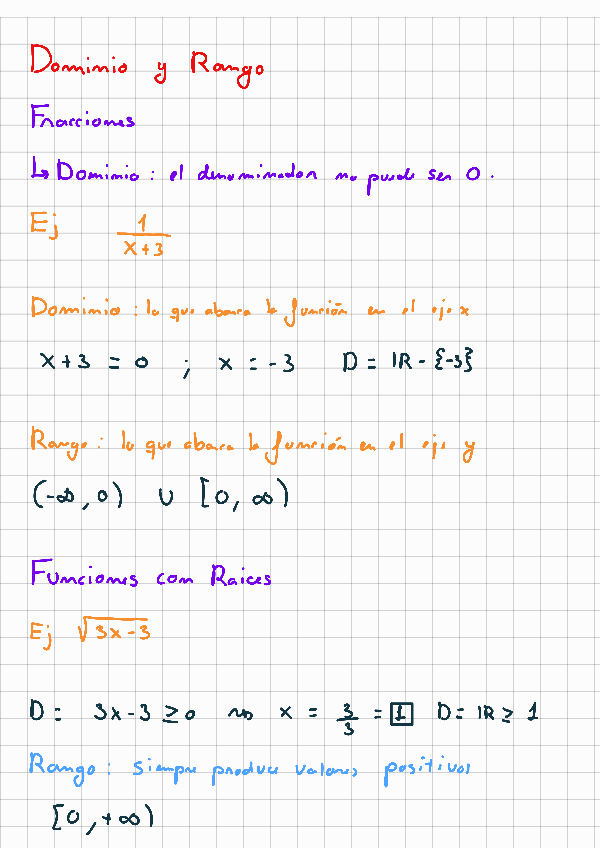 Dominio y Rango
Fracciones
↳ Dominio : el denominador no puede ser 0 .
Ej 1/(x+3)
Dominio : lo que abarca la función en el eje x
x+3 = 0 ; x = -3 D = IR - {-3}
Rango : lo que abarca la función en el eje y
(-∞, 0) ∪ [0, ∞)
Funciones con Raices
Ej √(3x-3)
D = 3x-3 ≥ 0 ⇝ x = 3/3 = 1 D = IR ≥ 1
Rango : siempre produce valores positivos
[0, +∞)